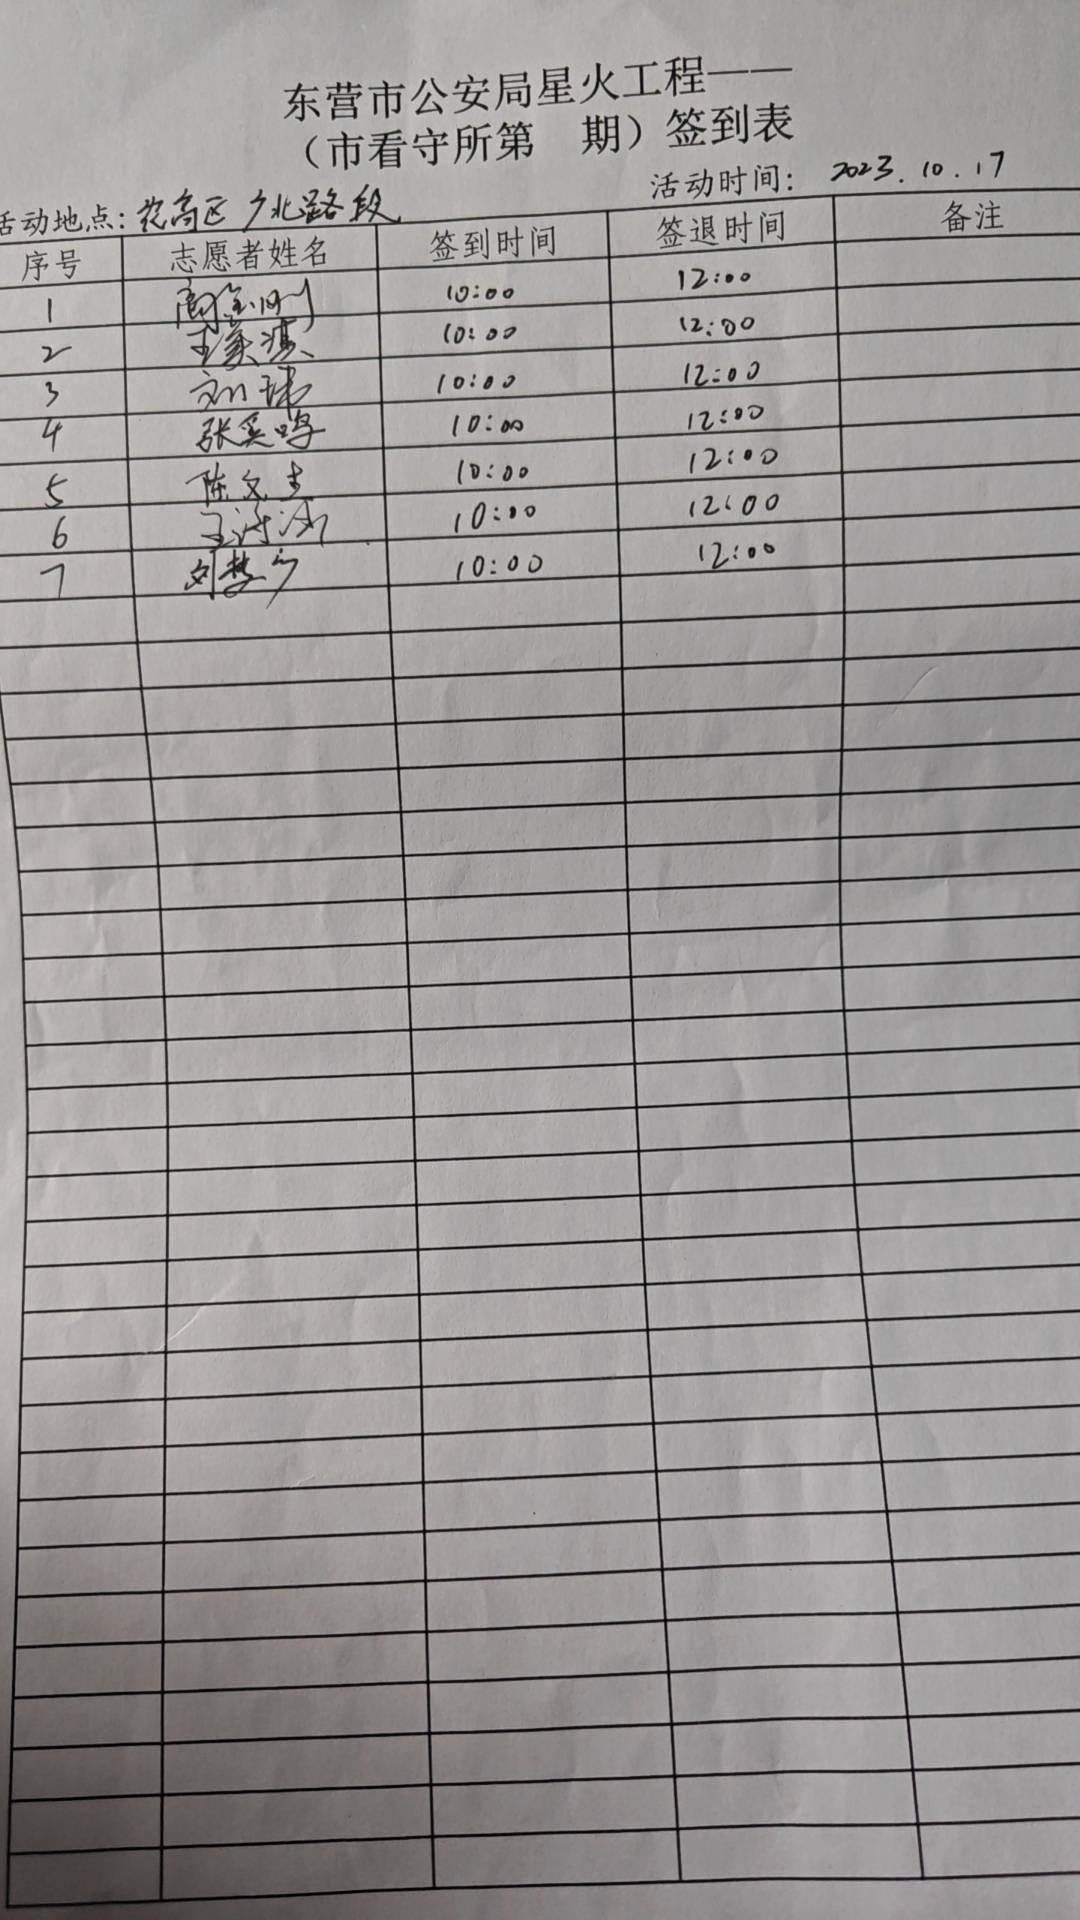 东营市公安局星火工程——
（市看守所第 期）签到表
活动时间： 2023.10.17
活动地点：农高区广北路段
序号 志愿者姓名 签到时间 签退时间 备注
1 10:00 12:00
2 10:00 12:00
3 刘玮 10:00 12:00
4 张奚鸣 10:00 12:00
5 陈文圭 10:00 12:00
6 10:00 12:00
7 刘梦 10:00 12:00